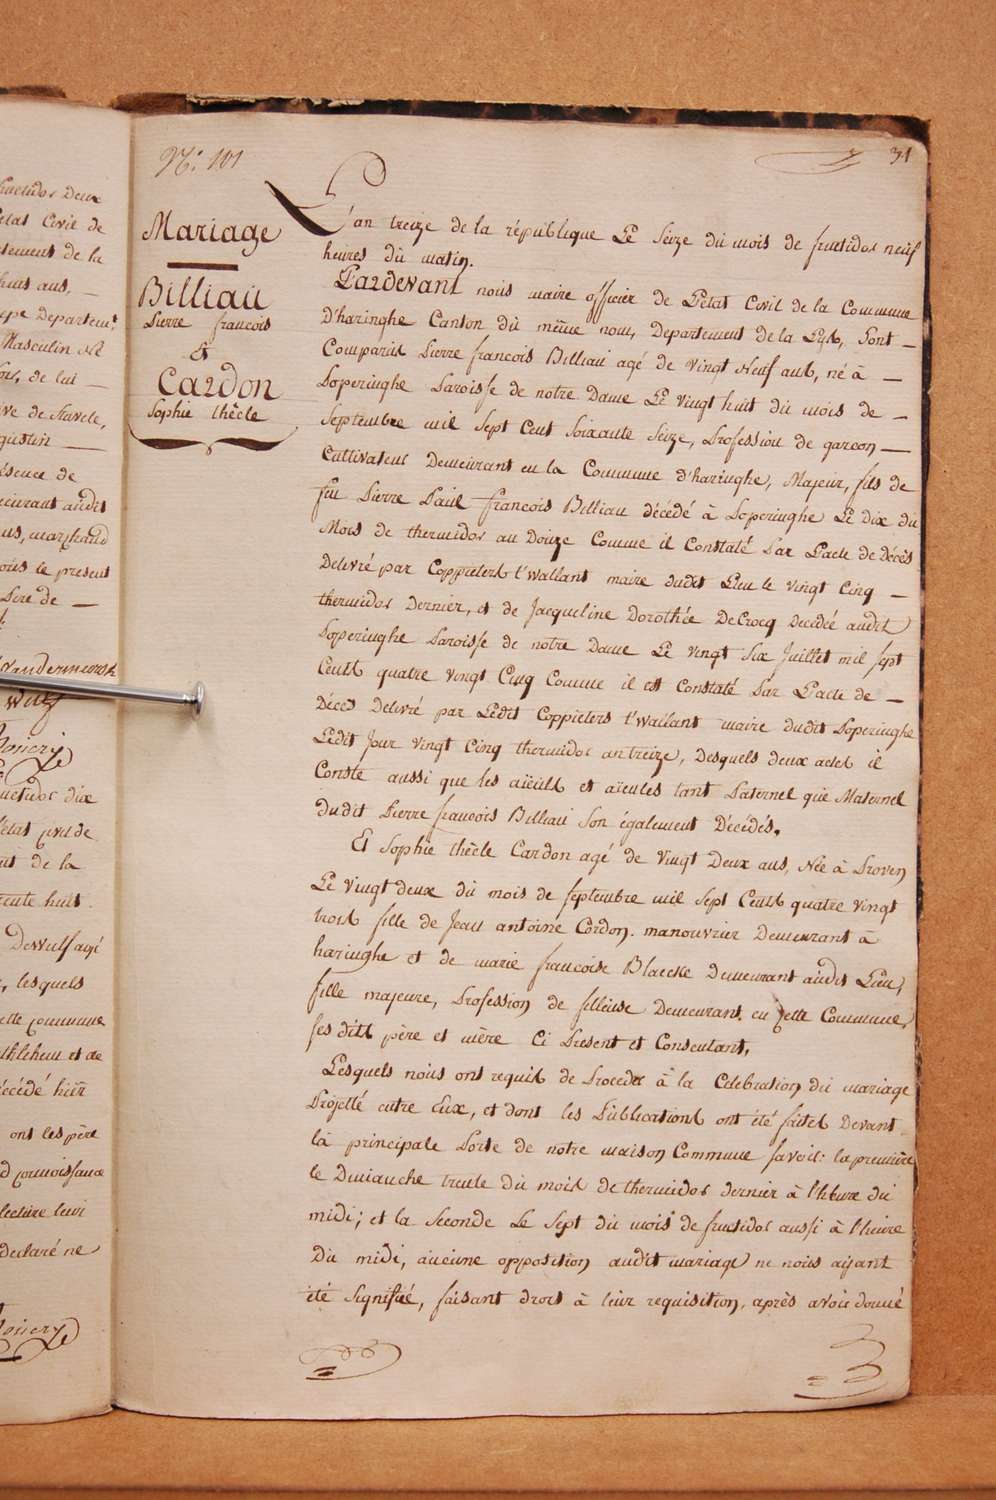 fructidor deux
l'état Civil de
rtement de la
huit ans, —
Masculin né
ors, de lui —
ve de Stavele,
gustin —
ésence de
eurant audit
us, marchand
le present
Pere de —
Vandermersch
Wulf
ructidor dix
l'état civil de
nt de la
trente huit.
DeWulf agé
, lesquels
ette commune
ethlehem et de
décédé hier
ont les père
lecture leur
declaré ne
N.° 101
31
Mariage
Billiau
Pierre francois
&
Cardon
Sophie thècle
L'an treize de la république Le Seize du mois de fructidor neuf
heures du matin.
Pardevant nous maire officier de L'état Civil de la Commune
d'haringhe Canton du même nom, Departement de la Lys, Sont —
Comparus Pierre francois Billiau agé de vingt Neuf ans, né à —
Poperinghe Paroisse de notre Dame Le vingt huit du mois de —
Septembre mil Sept Cent Soixante Seize, Profession de garcon —
Cultivateur Demeurant en la Commune d'haringhe, Majeur, fils de
feu Pierre Paul francois Billiau décédé à Poperinghe Le Dix du
Mois de thermidor an Douze Comme il Constaté Par L'acte de Décès
Delivré par Coppieters t'Wallant maire dudit Lieu le vingt Cinq —
thermidor Dernier, et de Jacqueline Dorothée DeCrocq Decédée audit
Poperinghe Paroisse de notre Dame Le vingt Six Juillet mil sept
Cents quatre vingt Cinq Comme il est Constaté Par L'acte de —
Décès Delivré par Ledit Coppieters t'Wallant maire dudit Poperinghe
Ledit Jour vingt Cinq thermidor an treize, Desquels deux actes il
Conste aussi que les aïeuls et aïeules tant Paternel que Maternel
dudit Pierre francois Billiau Son également Décédés.
Et Sophie thècle Cardon agé de Vingt Deux ans, Née à Proven
Le vingt deux du mois de septembre mil sept Cents quatre vingt
trois fille de Jean antoine Cordon. manouvrier Demeurant à
haringhe et de marie francoise Blaecke Demeurant audit Lieu,
fille majeure, Profession de fileuse Demeurant en cette Commune,
ses dits père et mère Ci Present et Consentant,
Lesquels nous ont requis de Proceder à la Celebration du mariage
Projetté entre Eux, et dont les Publications ont été faites Devant
la principale Porte de notre maison Commune savoir: la première
le Dimanche trente du mois de thermidor dernier à l'heure du
midi; et la Seconde Le Sept du mois de fructidor aussi à l'heure
Du midi, aucune opposition audit mariage ne nous ayant
été Signifié, faisant droit à leur requisition, après avoir donné